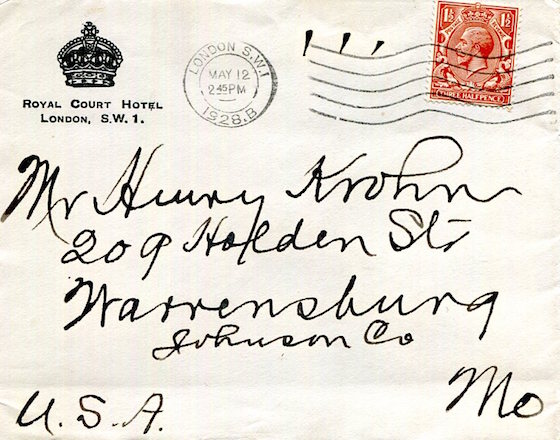 ROYAL COURT HOTEL
LONDON, S.W. 1.
LONDON S.W.1
MAY 12
2:45PM
1928.B
1½ 1½
THREE HALFPENCE
Mr Henry Krohn
209 Holden St
Warrensburg
Johnson Co
Mo
U.S.A.